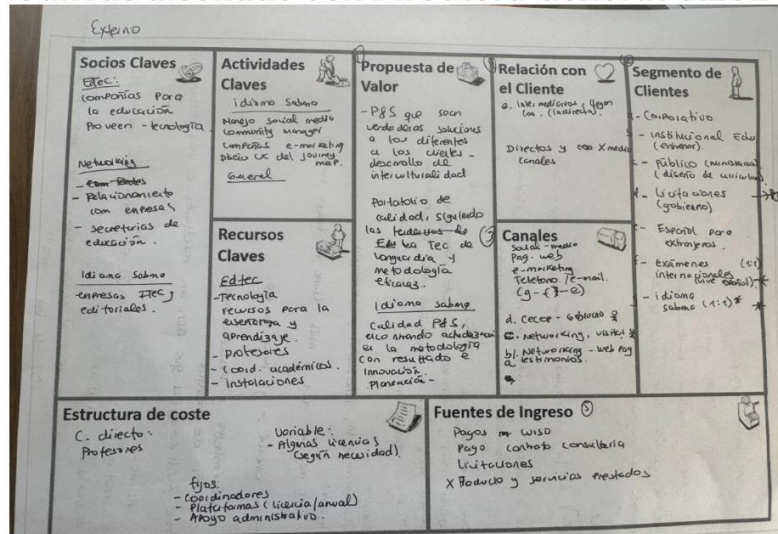 Externo
Socios Claves
ETec:
Compañías para
la educación
Proveen - tecnología
Networking
- Relacionamiento
con empresas
- Secretarias de
educación.
Idioma Sabana
empresas ETEC y
editoriales.
Actividades
Claves
idioma Sabana
Manejo social media
Community manager
Campañas e-marketing
del Journey
map.
General
Recursos
Claves
Edtec
- Tecnología
recursos para la
enseñanza y
aprendizaje.
- profesores
- Coord. académicos.
- Instalaciones
Propuesta de
Valor
- P&S que sean
verdaderas soluciones
a los diferentes
a los clientes -
desarrollo de
interculturalidad
Portafolio de
calidad, siguiendo
las
Tec de
vanguardia y
metodología
eficaces.
Idioma Sabana
Calidad P&S,
en la metodología
con resultado e
Innovación.
Planeación -
Relación con
el Cliente
a. Intermediarios, llegan
con. (indirecta).
Directos y con X medio
canales
Canales
Social - media
Pag. web
e-marketing
Telefono /e-mail.
(g - f - e)
d. CECOP - Gobierno
c. Networking, visitas
b. Networking - web Pag
a testimonios.
Segmento de
Clientes
- Corporativo
- Institucional Edu
- Público
(diseño de
d. Licitaciones
(gobierno)
- Español para
extranjeros.
- Exámenes (1:1)
internacionales
- idioma
sabana (1:1)
Estructura de coste
C. directo:
Profesores
Variable:
- Algunas licencias
(según necesidad)
fijos.
- Coordinadores
- Plataformas (licencia/anual)
- Apoyo administrativo.
Fuentes de Ingreso
Pagos curso
Pago contrato consultoría
Licitaciones
X Producto y servicios prestados